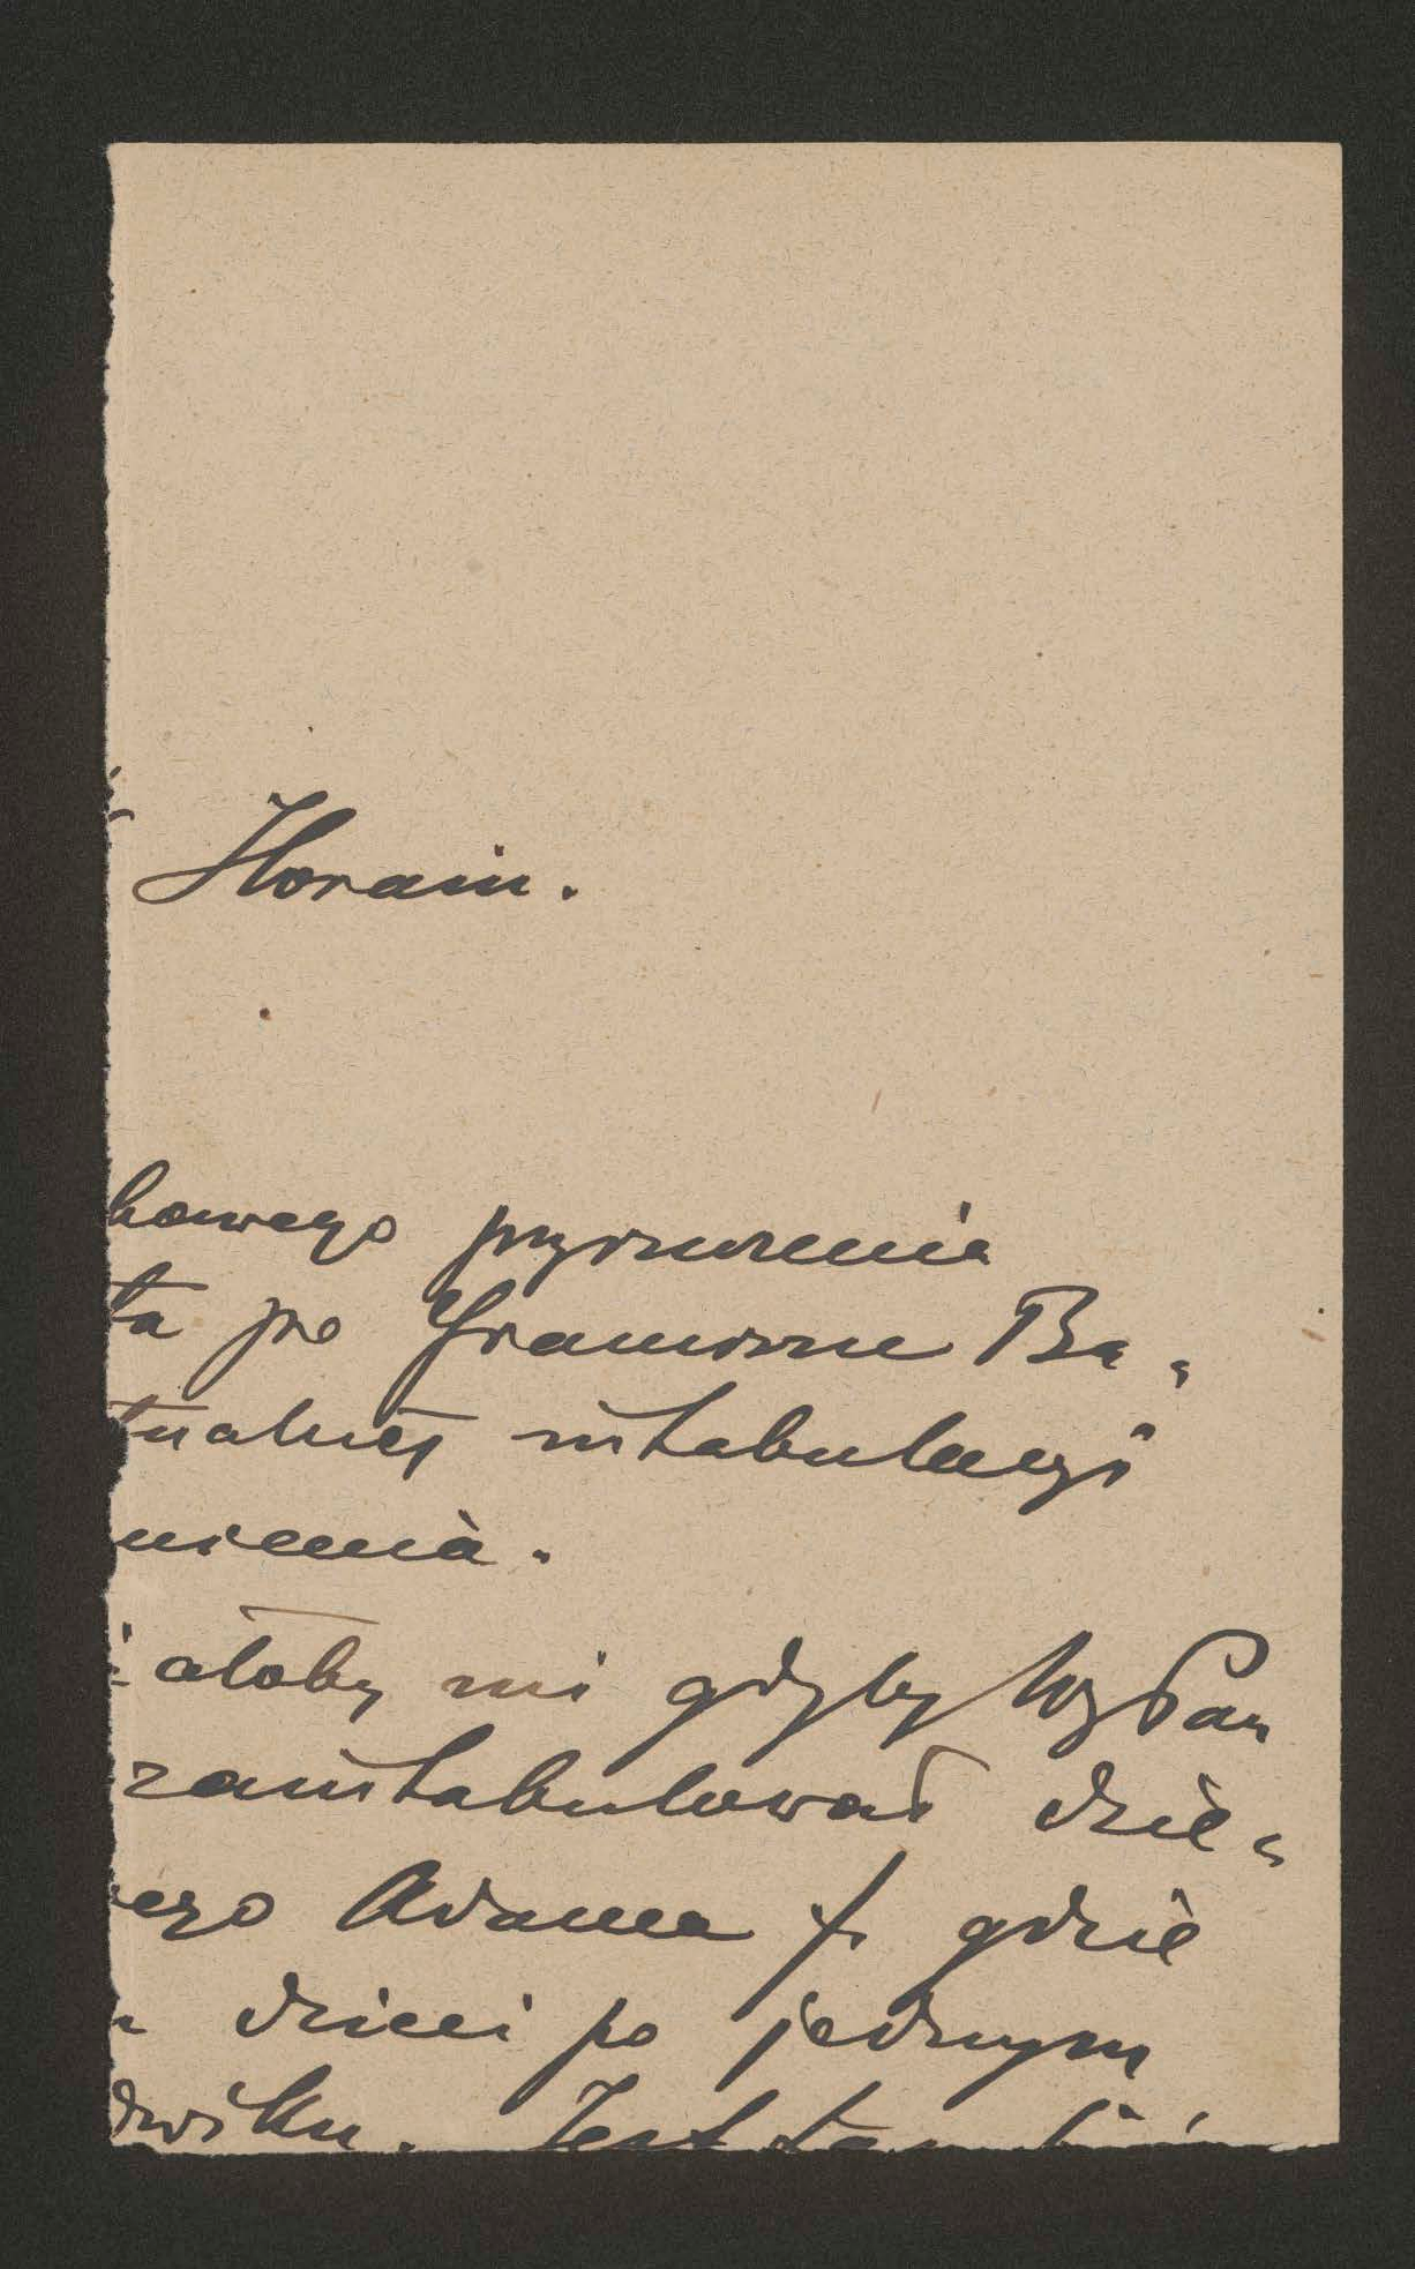 Horain.
kowego przyrzeczenia
ta po Franciszce Ba„
tualnéj intabulacyi
nienia.
żałoby mi gdyby Wg Pan
zaintabulował dzie„
ego Adama J. gdzie
dzieci po jednym
dwiku. Jest tam